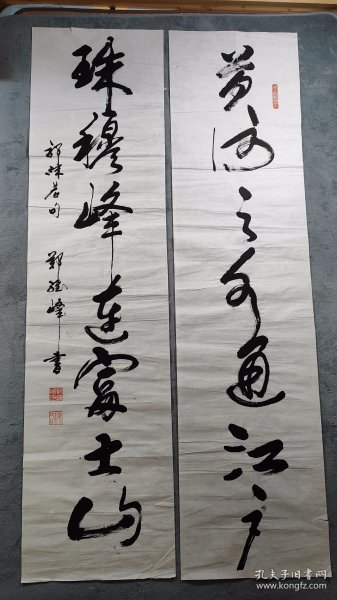 黄河之水通江户
珠穆峰连富士山
郭沫若句 郑继峰书
孔夫子旧书网
www.kongfz.com